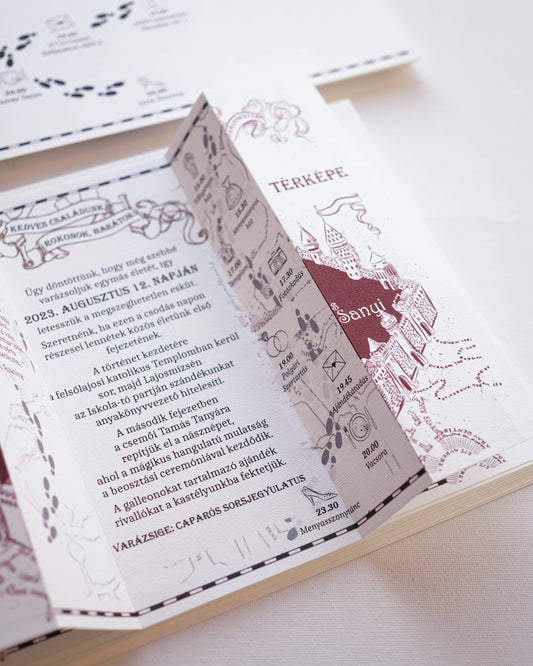 KEDVES CSALÁDUNK,
ROKONOK, BARÁTOK!
Úgy döntöttünk, hogy még szebbé
varázsoljuk egymás életét, így
2023. AUGUSZTUS 12. NAPJÁN
letesszük a megszeghetetlen esküt.
Szeretnénk, ha ezen a csodás napon
részesei lennétek közös életünk első
fejezetének.
A történet kezdetére
a felsőlajosi katolikus Templomban kerül
sor, majd Lajosmizsén
az Iskola-tó partján szándékunkat
anyakönyvvezető hitelesíti.
A második fejezetben
a csemői Tamás Tanyára
repítjük el a násznépet,
ahol a mágikus hangulatú mulatság
a beosztási ceremóniával kezdődik.
A galleonokat tartalmazó ajándék
rivallókat a kastélyunkba fektetjük.
VARÁZSIGE: CAPARÓS SORSJEGYULATUS
15.30
17.00
17.30
Fotózkodás
19.00
Polgári
Szertartás
19.45
Ajándékátadás
20.00
Vacsora
23.30
Menyasszonytánc
TÉRKÉPE
Sanyi